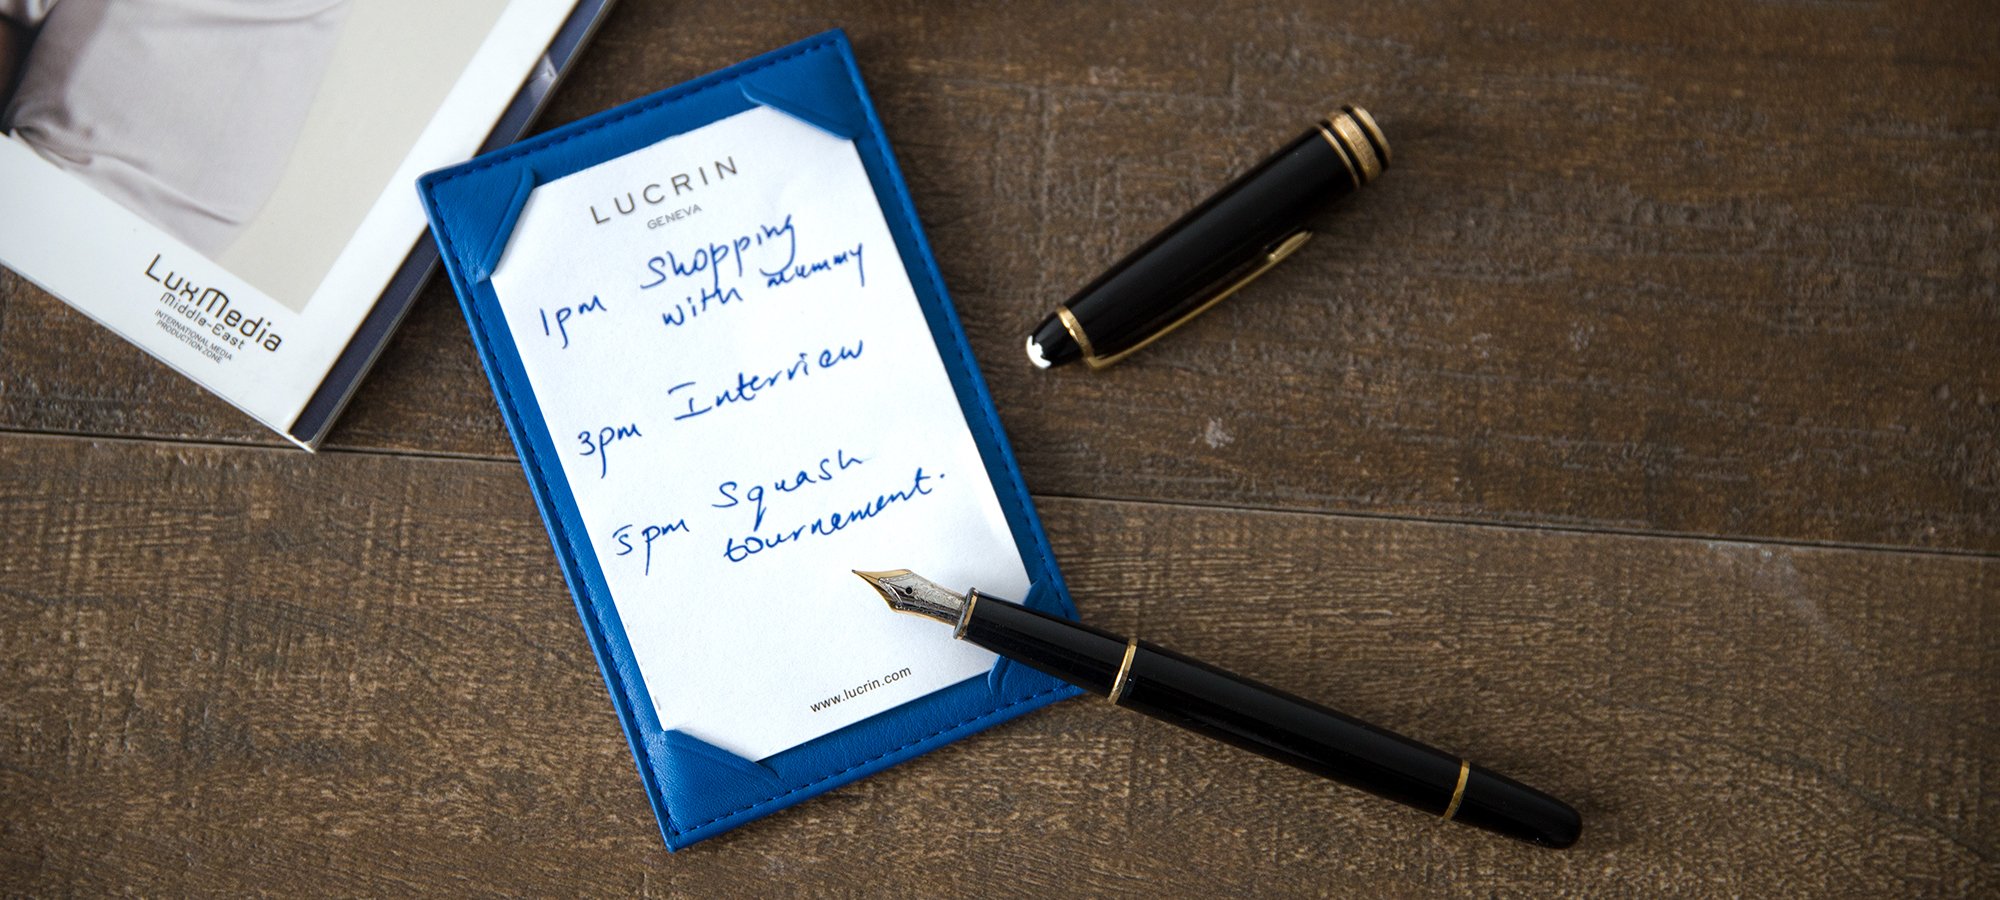 LUCRIN
GENEVA
1pm Shopping
with mummy
3pm Interview
5pm Squash
tournement.
www.lucrin.com
LuxMedia
Middle-East
INTERNATIONAL MEDIA
PRODUCTION ZONE